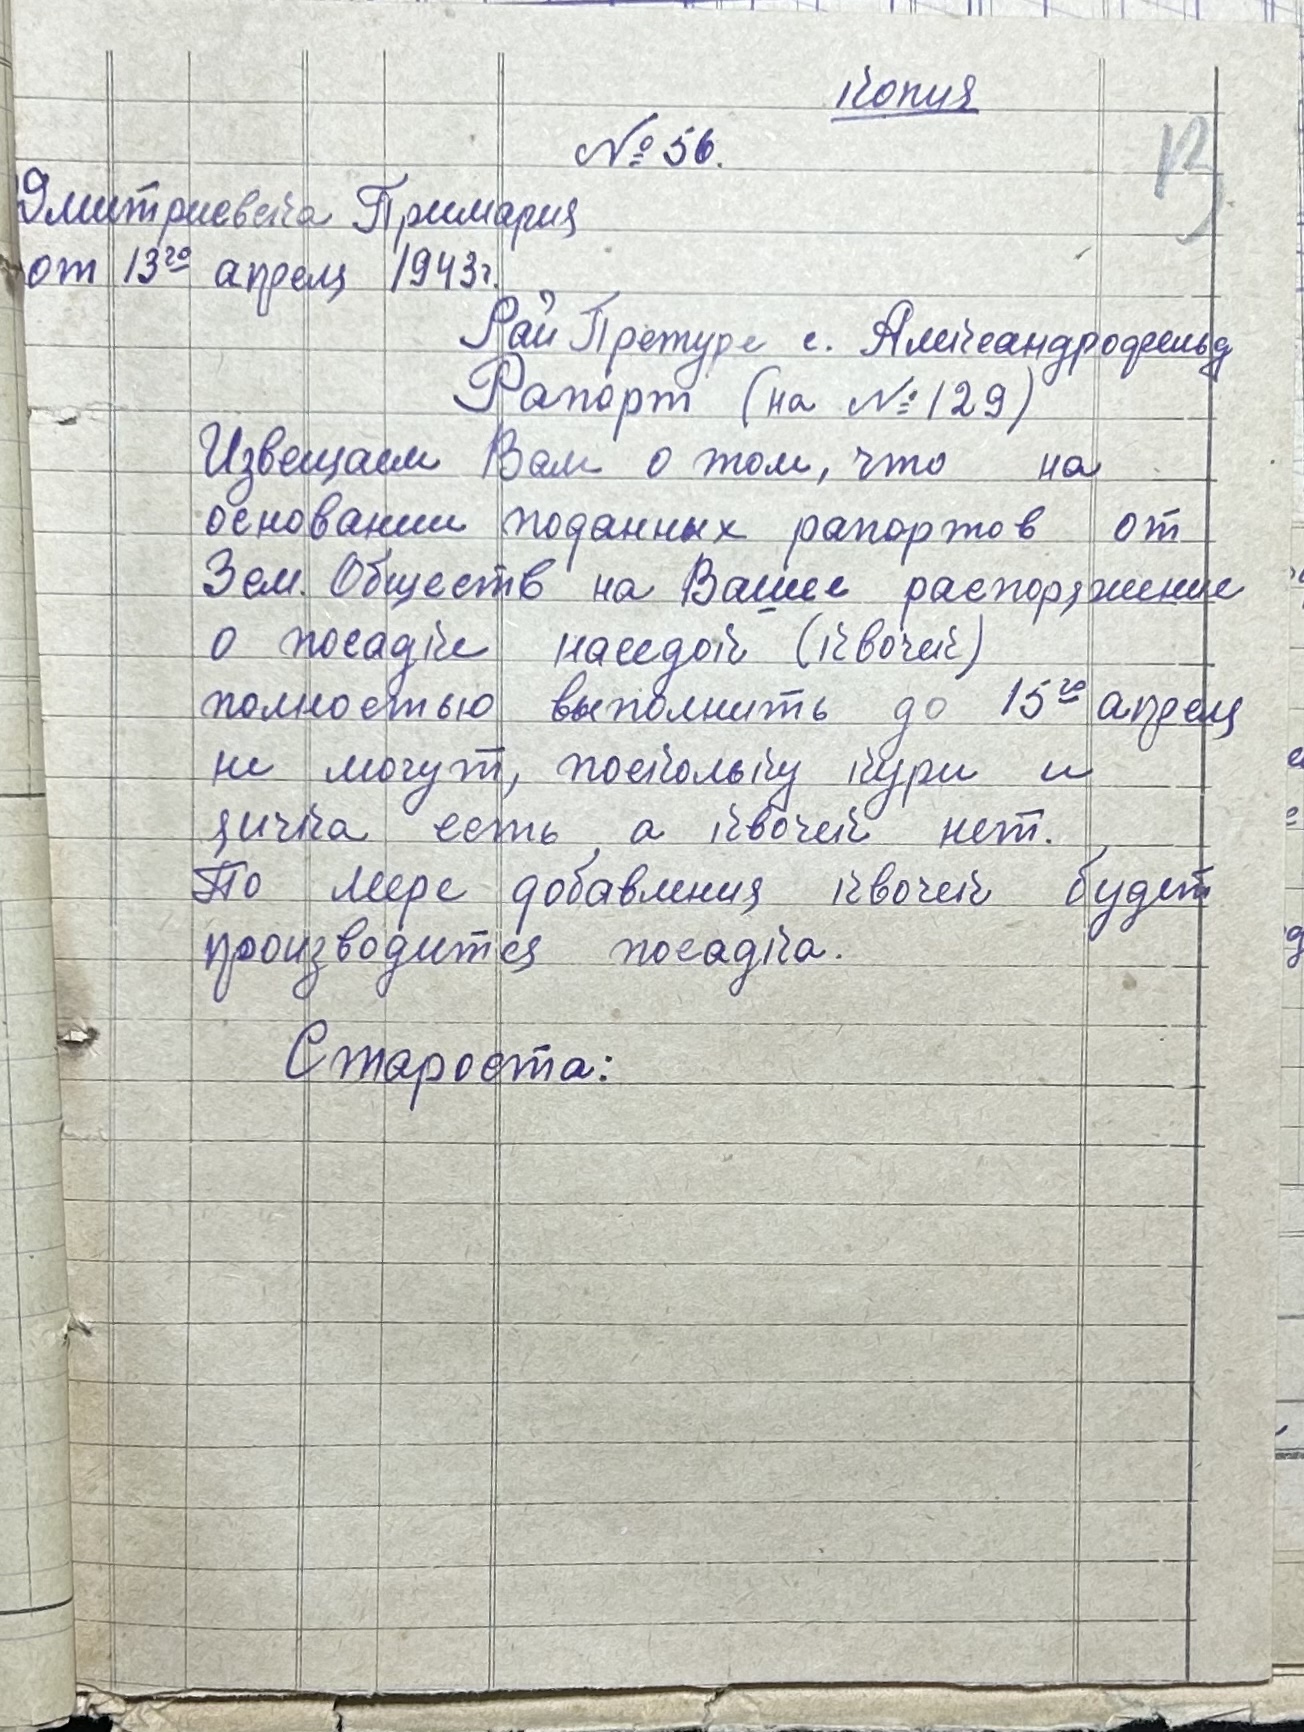 копия
№ 56.
Дмитриевска Примария
от 13го апреля 1943г.
Рай Претуре с. Александрофельд
Рапорт (на № 129)
Извещаем Вам о том, что на
основании поданных рапортов от
Зем. Обществ на Ваше распоряжение
о посадке наседой (квочек)
полностью выполнить до 15го апреля
не могут, поскольку кури и
яичка есть, а квочек нет.
По мере добавления квочек будет
производится посадка.
Староста: